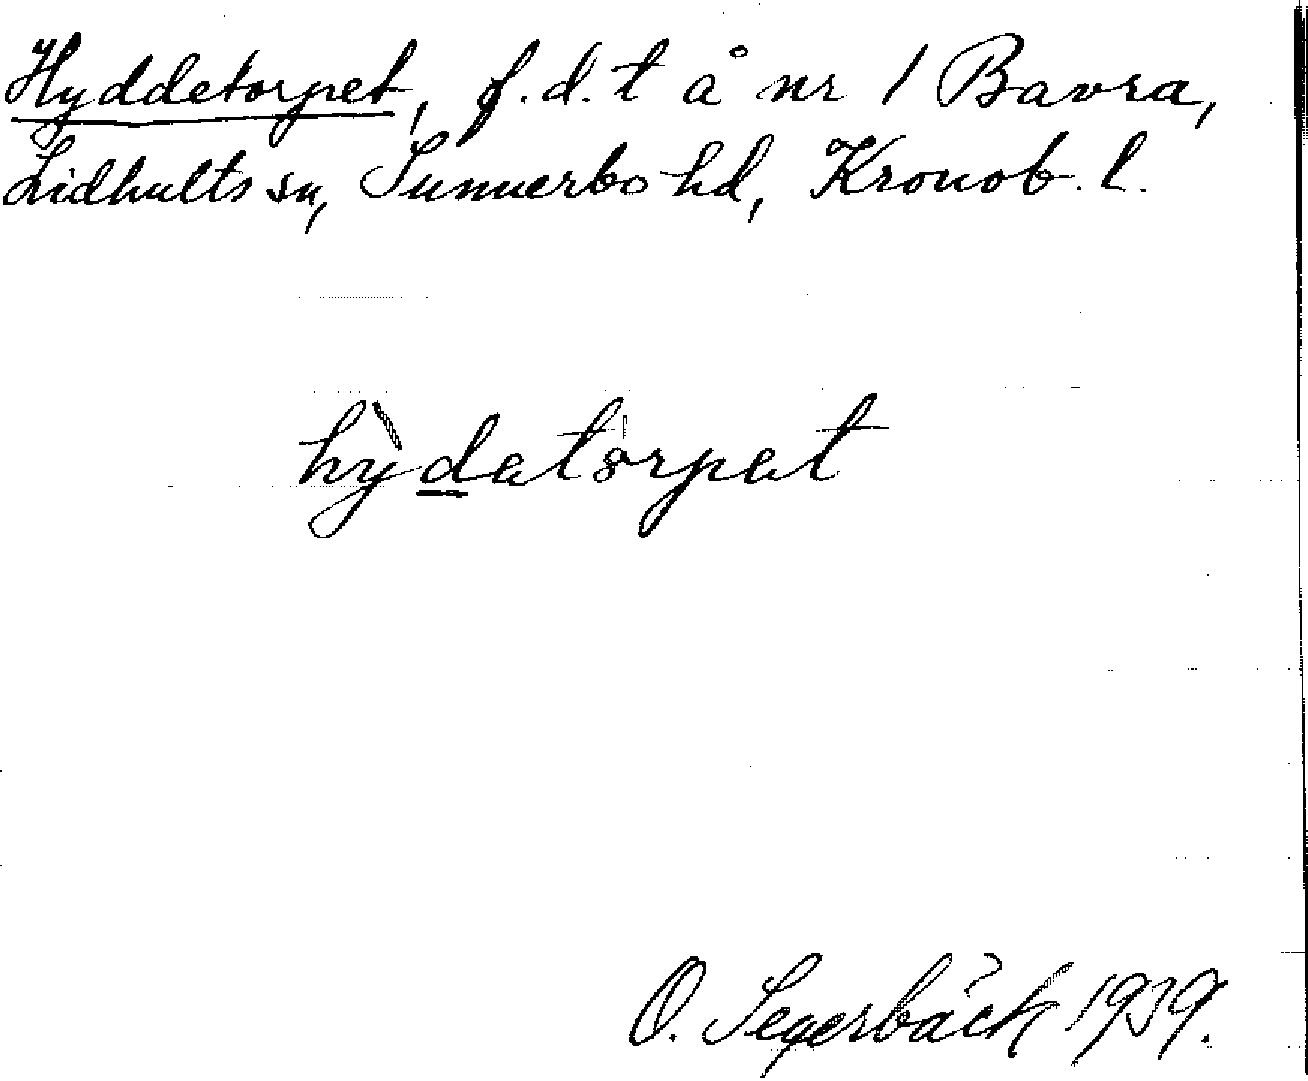 Hyddetorpet, f.d. t å nr 1 Bavra,
Lidhults sn, Sunnerbo hd, Kronob. l.
hỳdatȯrpat
O. Segerbäck 1939.